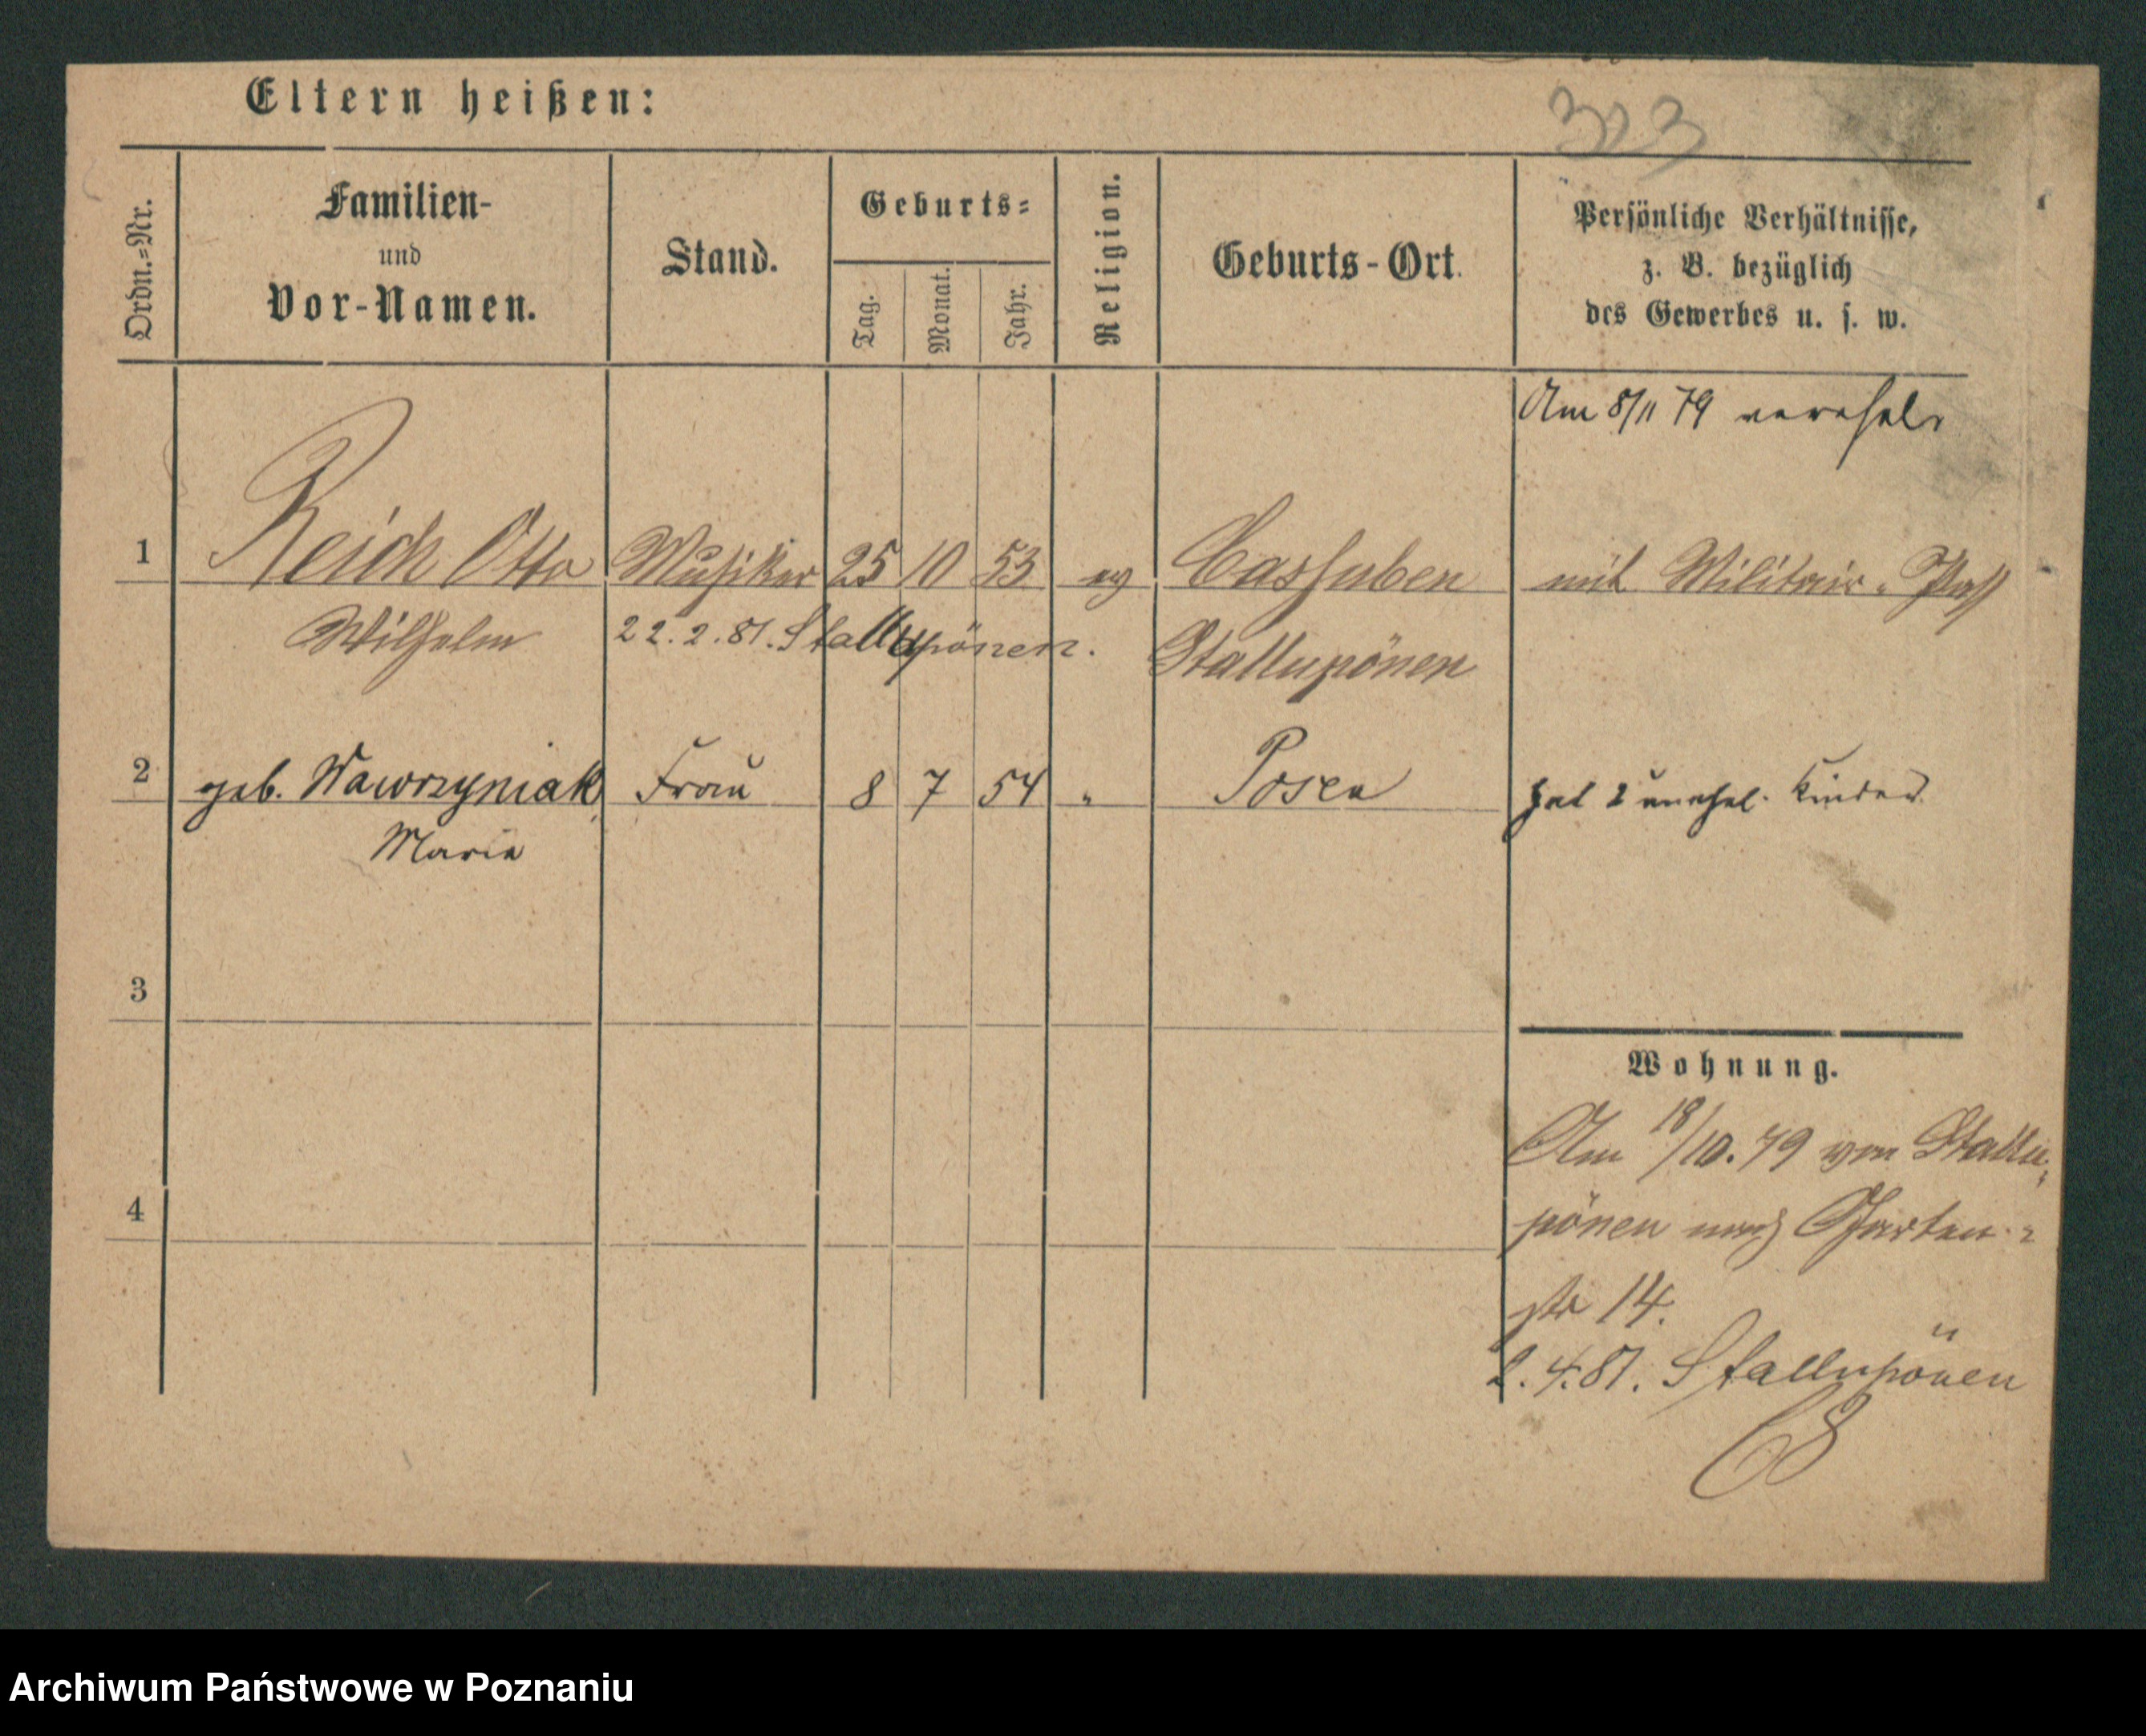 Eltern heißen:
323
Ordn.=Nr.
Familien-
und
Vor-Namen.
Stand.
Geburts=
Tag.
Monat.
Jahr.
Religion.
Geburts-Ort.
Persönliche Verhältnisse,
z. B. bezüglich
des Gewerbes u. s. w.
Am 8/11 79 verehel.
1 Reich Otto Musiker 25 10 53 ev Casguben mit Militair-Paß
Wilhelm 22.2.81. Stallupönen. Stallupönen
2 geb. Wawrzyniak Frau 8 7 54 " Posen hat 2 unehel. Kinder
Maria
3
Wohnung.
Am 18/10.79 von Stallu-
pönen nach Garten-
4
str 14.
2.4.81. Stallupönen
Archiwum Państwowe w Poznaniu